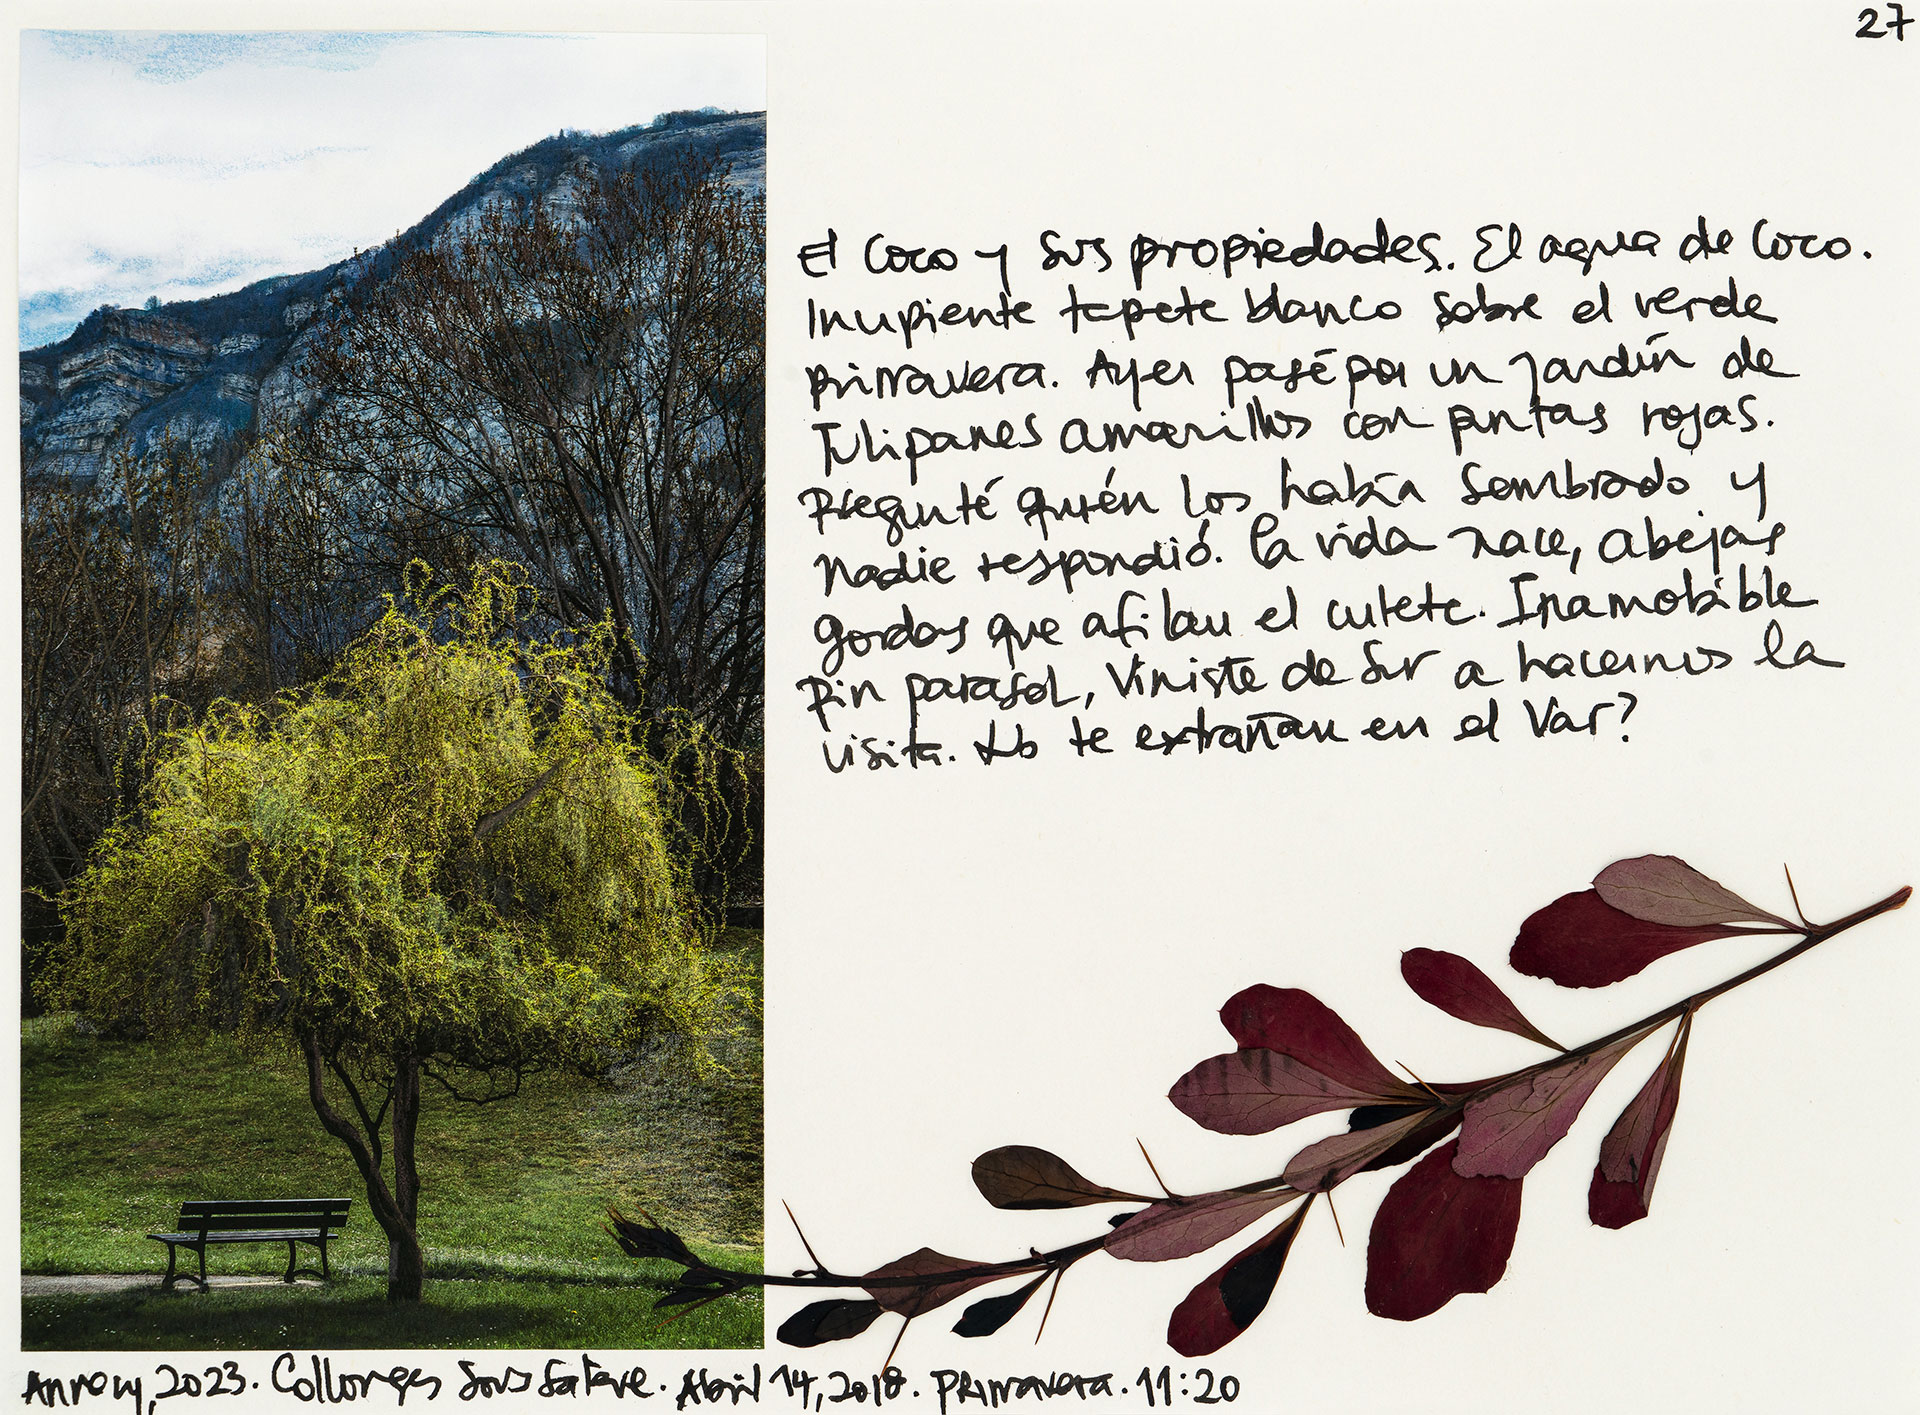 27
El Coco y sus propiedades. El agua de Coco.
Incipiente tapete blanco sobre el verde
primavera. Ayer pasé por un jardín de
Tulipanes amarillos con puntas rojas.
Pregunté quién los había sembrado y
nadie respondió. La vida nace, abejas
gordas que afilan el culete. Inamobible
pin parasol, Viniste de Sur a hacernos la
visita. No te extrañan en el Var?
Annecy, 2023. Collonges Sous Salève. Abril 14, 2018. Primavera. 11:20